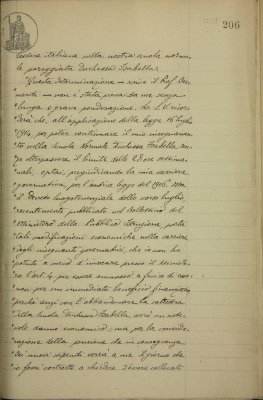 206
lettere italiane nella nostra scuola norma-
le pareggiata Duchessa Isabella.
Questa determinazione - cari e il Prof. Ber-
non è stata presa da me senza
lunga e grave ponderazione. La S. V. ricor-
derà che, all'applicazione della legge 16 luglio
1914 per poter continuare il mio insegnamen-
to nella Scuola Normale Duchessa Isabella, sen-
za oltrepassare il limite delle 28 ore settima-
nali, optai, pregiudicando la mia carriera
governativa, per l'antica legge del 1906. Ma
il Decreto luogotenenziale dello scorso luglio,
recentemente pubblicato nel Bollettino del
Ministero della Pubblica Istruzione, porta
tali modificazioni economiche nella carriera
degli insegnanti governativi, che io non ho
potuto a meno d'invocare presso il Ministe-
ro l'art. 4 per essere ammesso a fruirne di esse:
non per un immediato beneficio finanziario,
perchè anzi con l'abbandonare la cattedra
della Scuola Duchessa Isabella avrò un note-
vole danno economico, ma per la conside-
razione della pensione che in conseguenza
dei nuovi stipendi verrà a me il giorno che
io fossi costretto a chiedere d'essere collocato